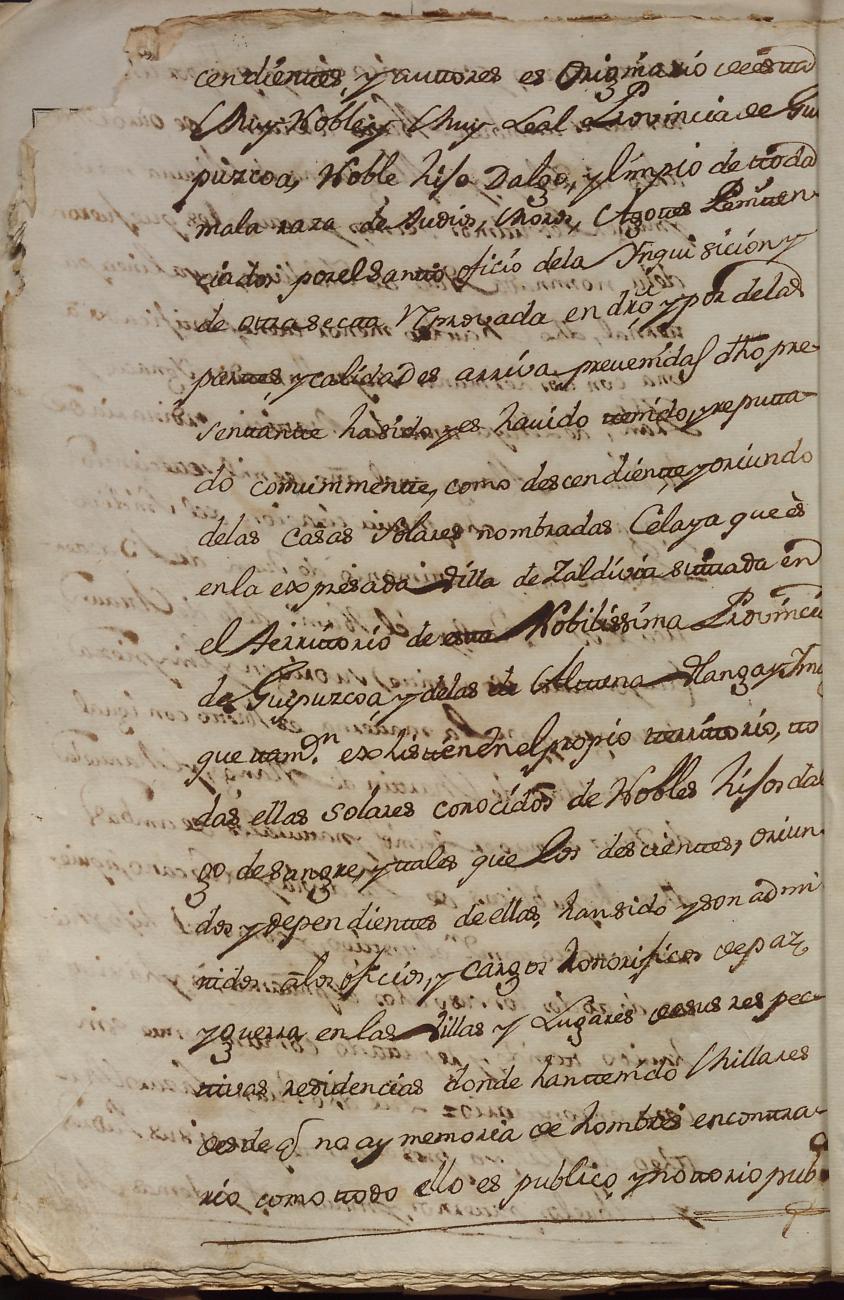 cendientes, y auttores es Originario de estta
Muy Noble, y Muy Leal Provincia de Gui
puzcoa, Noble hijo Dalgo, y limpio de ttoda
mala raza de Judios, Moros, Agottes Penitten
ciados por el Santto oficio de la Ynquisicion y
de ottra sectta Reprovada en dro y por de las
parttes y calidades arriva prevenidas dho pre
senttantte ha sido y es havido ttenido, y reputta
do comunmentte, como descendientte y oriundo
de las Casas Solares nombradas Celaya que es
en la expresada Villa de Zaldivia situada en
el Territtorio de estta Nobilissima Provincia
de Guipuzcoa y de las de Altuena
que ttamvn. existten en el propio tterrittorio, tto
das ellas solares conocidos de Nobles hijos dal
go de sangre, y ttales que los descienttes, oriun
dos y dependienttes de ellas, han sido y son admi
ttidos a los oficios, y cargos honorificos de paz,
y guerra en las Villas y Lugares de sus respec
ttivas residencias donde han ttenido Millares
desde q no ay memoria de hombres en conttra
rio como ttodo ello es publico, y nottorio pub